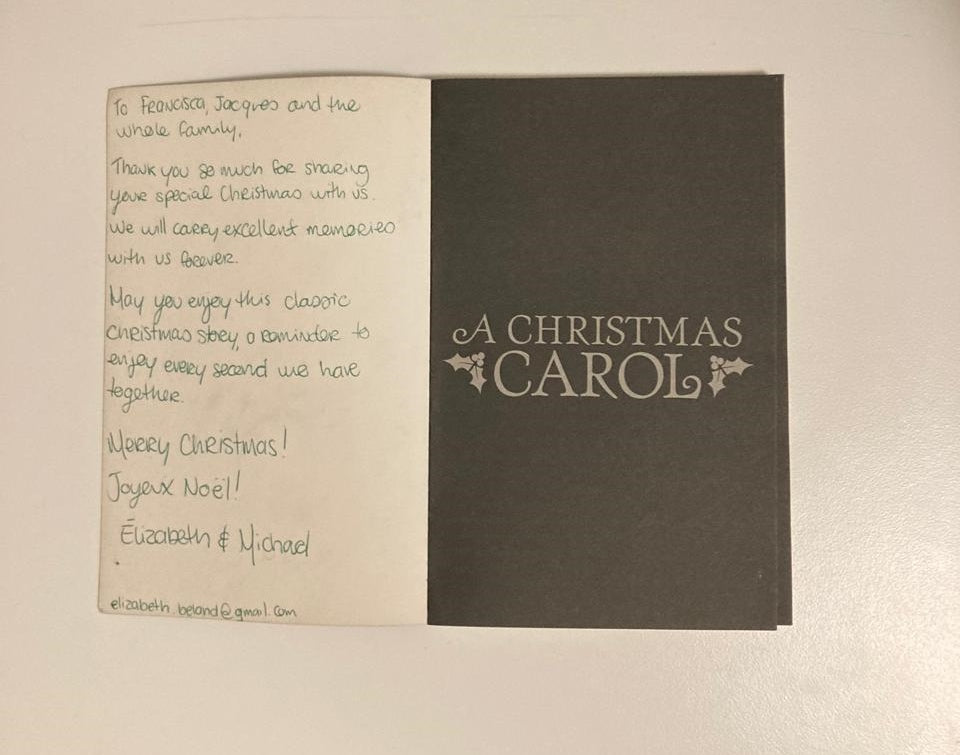 To Francisca, Jacques and the
whole family,
Thank you so much for sharing
your special Christmas with us.
We will carry excellent memories
with us forever.
May you enjoy this classic
Christmas story, a reminder to
enjoy every second we have
together.
Merry Christmas!
Joyeux Noël!
Élizabeth & Michael
elizabeth.beland@gmail.com
A CHRISTMAS
CAROL